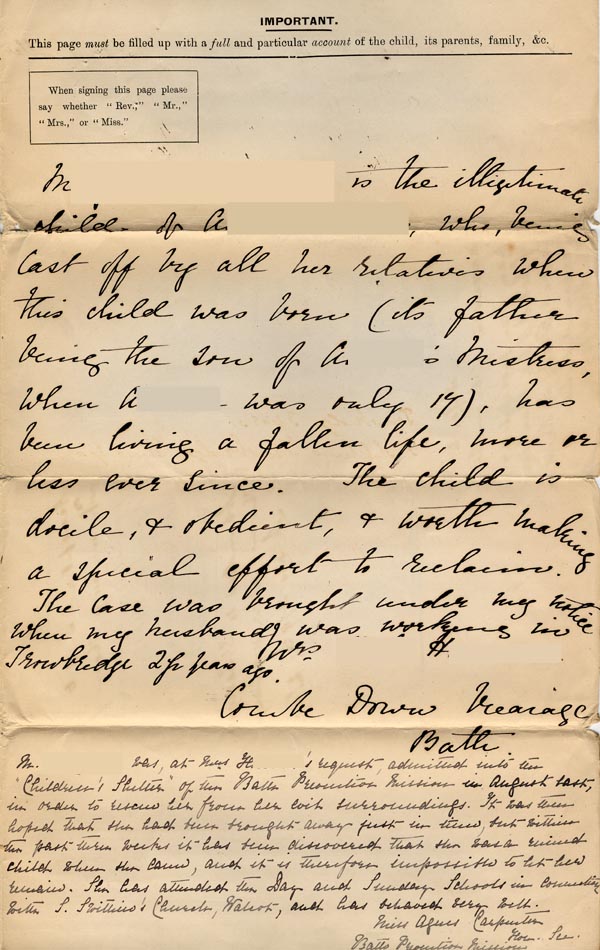 IMPORTANT.
This page must be filled up with a full and particular account of the child, its parents, family, &c.
When signing this page please
say whether "Rev.," "Mr.,"
"Mrs.," or "Miss."
M is the illigitimate
child of A , who, being
cast off by all her relatives when
this child was born (its father
being the son of A 's Mistress,
when A - was only 17), has
been living a fallen life, more or
less ever since. The child is
docile, & obedient, & worth making
a special effort to reclaim.
The case was brought under my notice
when my husband was working in
Trowbridge 2½ years ago.
Mrs H
Combe Down Vicarage
Bath
M. was, at Mrs H 's request, admitted into the
"Children's Shelter" of the Bath Preventive Mission in August last,
in order to rescue her from her evil surroundings. It was then
hoped that she had been brought away just in time, but within
the past three weeks it has been discovered that she was a ruined
child when she came, and it is therefore impossible to let her
remain. She has attended the Day and Sunday Schools in connection
with S. Swithin's Church, Walcot, and has behaved very well.
Miss Agnes Carpenter
Hon. Sec.
Bath Preventive Mission